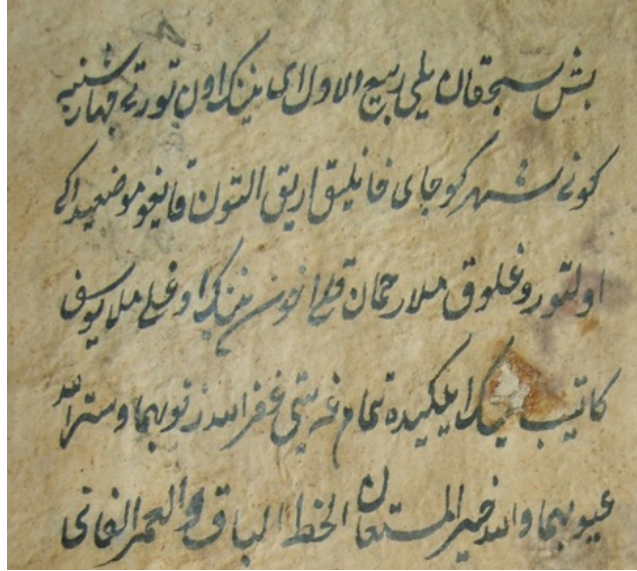 بش سیچقان یلی ربیع الاول ای نینک اون تورتی چهار شنبه
کونی شهر کوجای قانلیق اریق التون قایغو موضعیداکی
اولتوروغلوق ملا رحمان قلی اخون نینک اوغلی ملا یوسف
کاتیب ایلکیده تمام غه یتی غفر الله ذنوبهما و ستر الله
عیوبهما والله خیر المستعان الخط الباقی والعمر الفانی